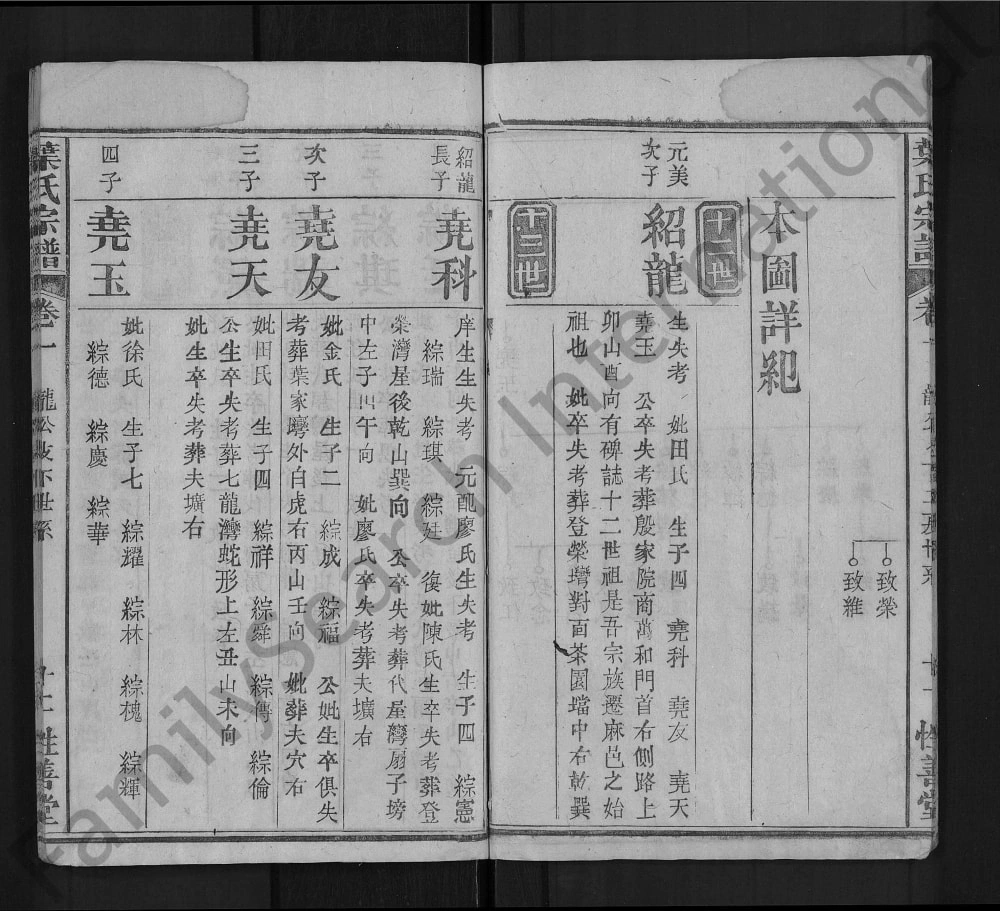 致榮
致維
本圖詳紀
十二世
元美次子
紹龍
生失考 妣田氏 生子四 堯科 堯友 堯天
堯玉 公卒失考葬殷家院商萬和門首右側路上
卯山酉向有碑誌十二世祖是吾宗族遷麻邑之始
祖也 妣卒失考葬登榮塆對面茶園壋中右乾巽
十三世
紹龍長子
堯科
庠生生失考 元配廖氏生失考 生子四 綜憲
綜瑞 綜琪 綜廷 復妣陳氏生卒失考葬登
榮灣屋後乾山巽向 公卒失考葬代屋灣扇子塝
中左子山午向 妣廖氏卒失考葬夫壙右
次子
堯友
妣金氏 生子二 綜成 綜福 公妣生卒俱失
考葬葉家塆外白虎右丙山壬向 妣葬夫穴右
三子
堯天
妣田氏 生子四 綜祥 綜舜 綜傳 綜倫
公生卒失考葬七龍灣蛇形上左丑山未向
妣生卒失考葬夫壙右
四子
堯玉
妣徐氏 生子七 綜耀 綜林 綜槐 綜輝
綜德 綜慶 綜華
葉氏宗譜
卷一
性善堂
葉氏宗譜
卷一 龍公支下世系
性善堂
FamilySearch International